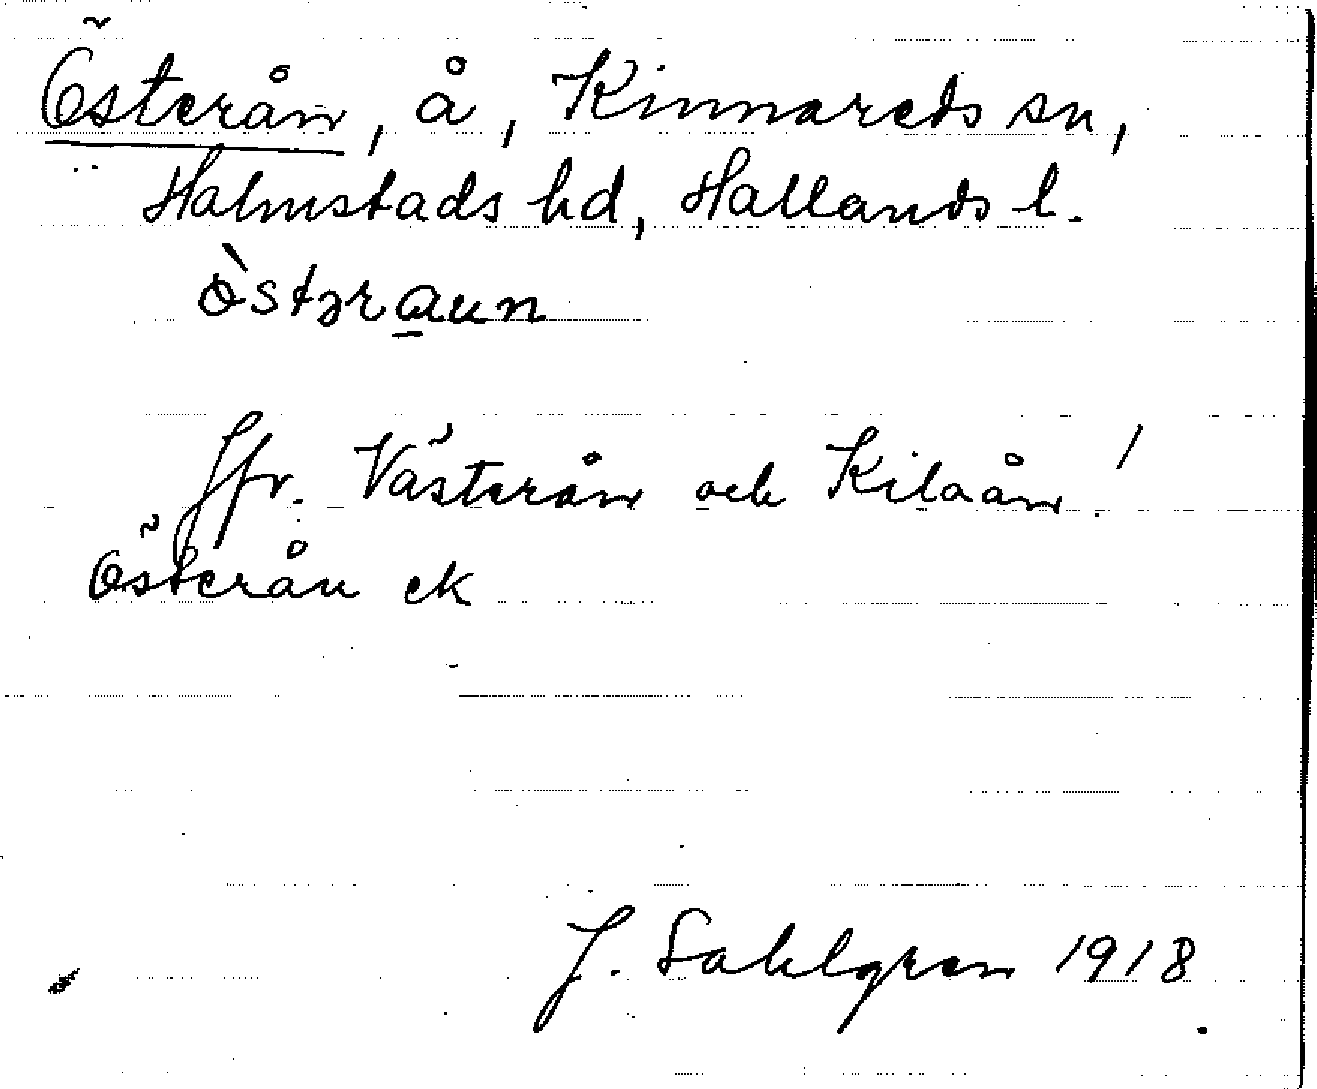 Österån, å, Kinnareds sn,
Halmstads hd, Hallands l.
ò̀stəra̲un
Jfr. Västerån och Kilaån!
Österån ek
J. Sahlgren 1918